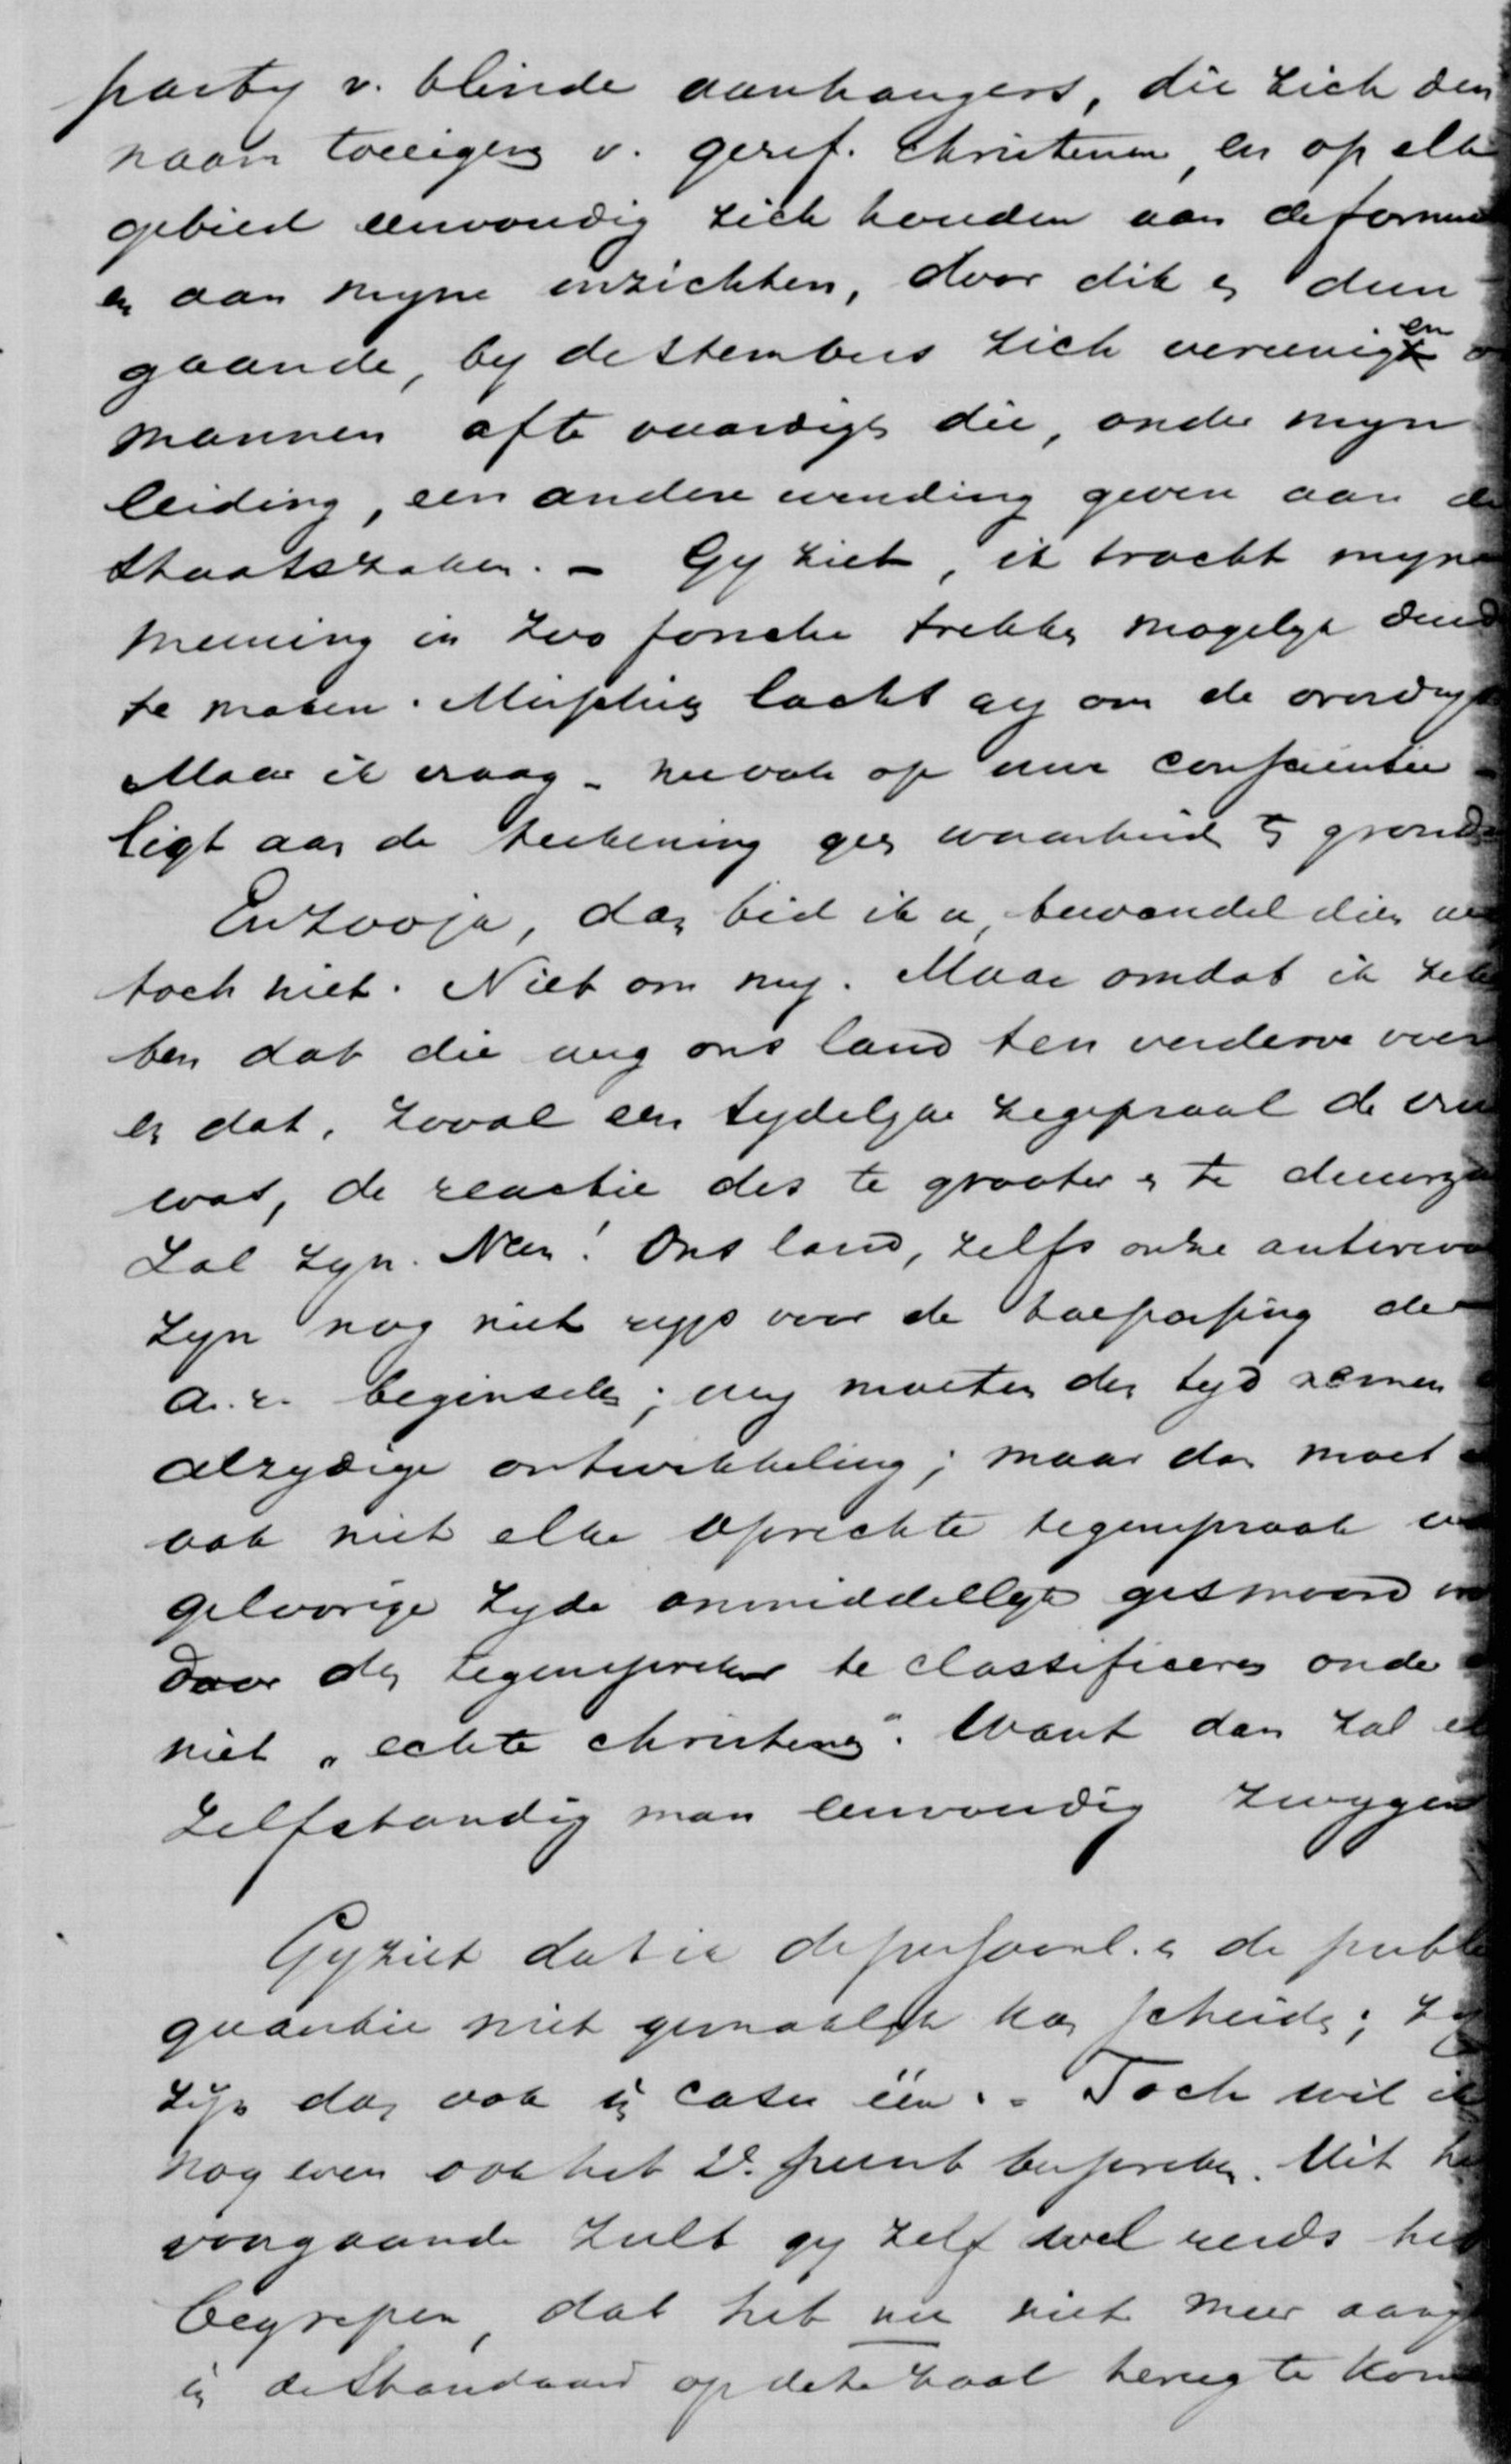 party v. blinde aanhangers, die zich den
naam toeeigens v. geref. Christenen, en op elk
gebied eenvoudig zich houden aan de formu
en aan myne inzichten, door dik en dun
gaande, by de stembus zich vereenigen
mannen afte vaardigen die, onder myn
leiding, een andere wending geven aan de
Staatszaken. – Gy ziet, ik tracht myne
meening in zoo forsche trekken mogelyk duid
te maken. Misschien lacht gy om de overdryv
Maar ik vraag – neevak op uur conscientie –
ligt aan de teekening geen waarheid ten grond
En zoo ja, dan bid ik u, bewandel dien weg
toch niet. Niet om my. Maar omdat ik zek
ben dat die weg ons land ten verderve voer
en dat, zoo al een tydelyke zegepraal de vru
was, de reactie des te grooter en te duurza
zal zyn. Neen! Ons land, zelfs onze antirevo
zyn nog niet ryp voor de toepassing der
a.r. beginselen; wy moeten den tyd nemen
alzydige ontwikkeling; maar dan moet
ook niet elke oprechte tegenspraak van
geloovige zyde onmiddellyk gesmoord wo
door den tegenspreker te classificeren onder
niet „echte christenen". Want dan zal elk
zelfstandig man eenvoudig zwygen
Gy ziet dat ik de persoonl. en de publ
quaestie niet gemakkelyk kan scheiden; zy
zyn dan ook in casu één. – Toch wil ik
nog even ook het 2e. punt bespreken. Uit he
voorgaande zult gy zelf wel reeds heb
begrepen, dat het nu niet meer aang
in de Standaard op deze zaak terug te kom